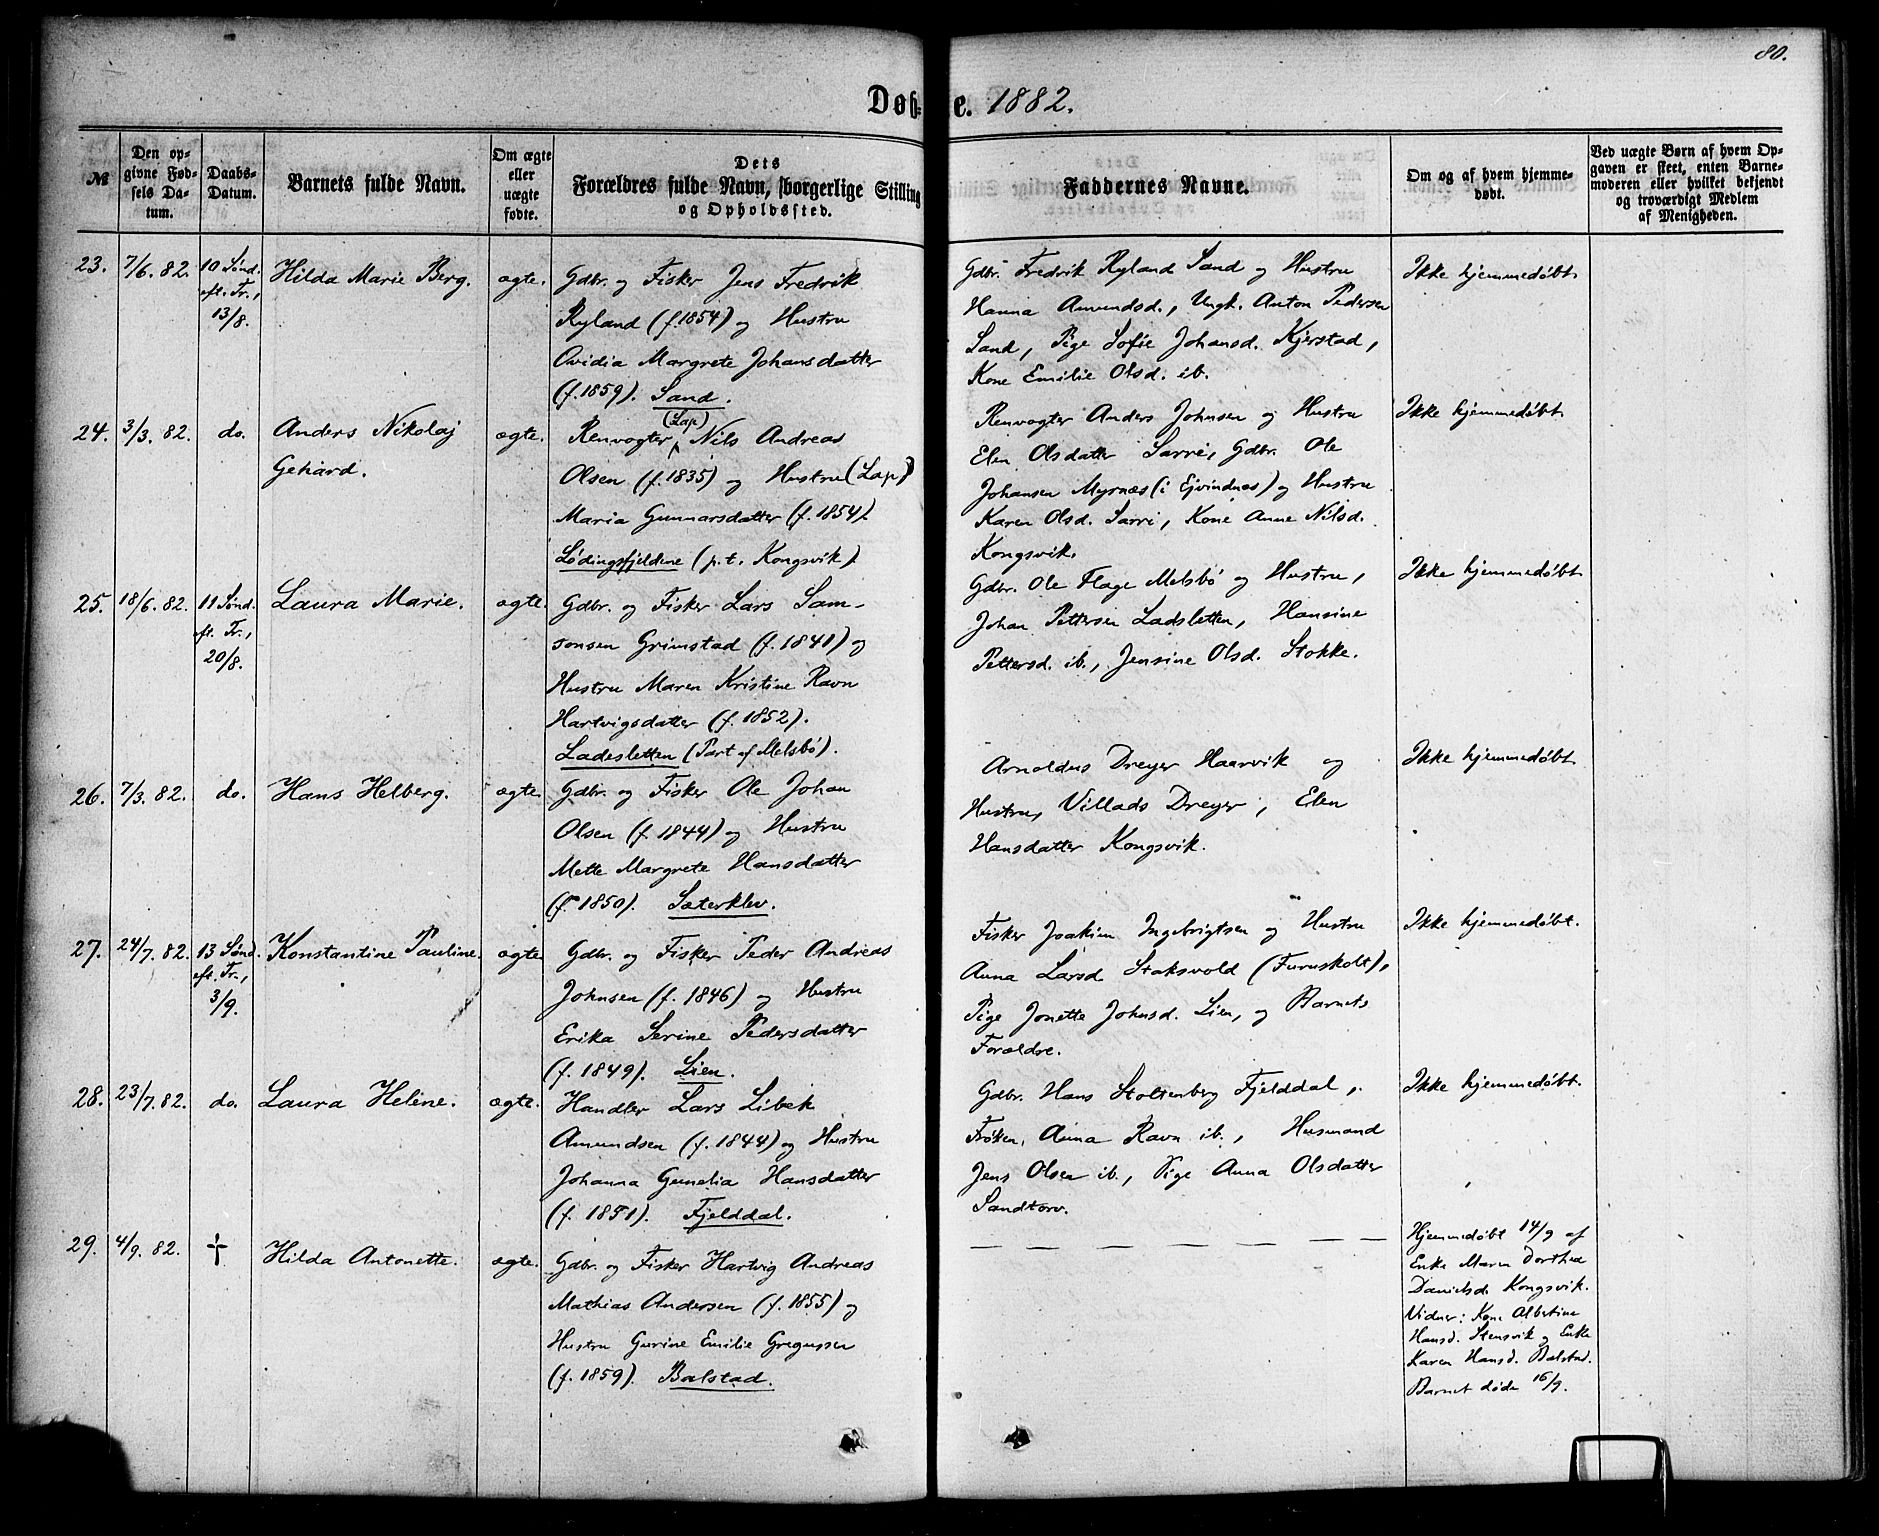 80.
Døbte. 1882.
№
Den opgivne Fødsels Datum.
Daabs-Datum.
Barnets fulde Navn.
Om ægte eller uægte fødte.
Dets Forældres fulde Navn, borgerlige Stilling og Opholdssted.
Faddernes Navne.
Om og af hvem hjemmedøbt.
Ved uægte Børn af hvem Opgaven er skeet, enten Barnemoderen eller hvilket bekjendt og troværdigt Medlem af Menigheden.
23. 7/6. 82. 10 Sønd. eft. Tr., 13/8. Hilda Marie Berg. ægte.
Gdbr. og Fisker Jens Fredrik
Ryland (f. 1854) og Hustru
Ovidia Margrete Johansdatter
(f. 1859). Sand.
Gdbr. Fredrik Ryland Sand og Hustru
Hanna Amundsd., Ungk. Anton Pedersen
Sand, Pige Sofie Johansd. Kjerstad,
Kone Emilie Olsd. ib.
Ikke hjemmedøbt.
24. 3/3. 82. do. Anders Nikolaj
Gehard. ægte.
Renvogter (Lap) Nils Andreas
Olsen (f. 1835) og Hustru (Lap)
Maria Gunnarsdatter (f. 1854).
Lødingsfjeldene (p.t. Kongsvik).
Renvogter Anders Johnsen og Hustru
Elen Olsdatter Sarri, Gdbr. Ole
Johansen Myrnæs (i Ejvindnæs) og Hustru
Karen Olsd. Sarri, Kone Anne Nilsd.
Kongsvik.
Ikke hjemmedøbt.
25. 18/6. 82. 11 Sønd. eft. Tr., 20/8. Laura Marie. ægte.
Gdbr. og Fisker Lars Sam-
sonsen Grimstad (f. 1841) og
Hustru Maren Kristine Ravn
Hartvigsdatter (f. 1852).
Ladesletten (Part af Melsbö).
Gdbr. Ole Flage Melsbö og Hustru,
Johan Pettersen Ladsletten, Hansine
Pettersd. ib., Jensine Olsd. Stokke.
Ikke hjemmedøbt.
26. 7/3. 82. do. Hans Helberg. ægte.
Gdbr. og Fisker Ole Johan
Olsen (f. 1844) og Hustru
Mette Margrete Hansdatter
(f. 1850). Sæterklev.
Arnoldus Dreyer Haarvik og
Hustru, Villads Dreyer, Elen
Hansdatter Kongsvik.
Ikke hjemmedøbt.
27. 24/7. 82. 13 Sønd. eft. Tr., 3/9. Konstantine Pauline. ægte
Gdbr. og Fisker Peder Andreas
Johnsen (f. 1846) og Hustru
Erika Serine Pedersdatter
(f. 1849). Lien.
Fisker Joakim Ingebrigtsen og Hustru
Anna Larsd Staksvold (Furuskolt),
Pige Jonette Johnsd. Lien, og Barnets
Forældre.
Ikke hjemmedøbt.
28. 23/7. 82. do. Laura Heline. ægte.
Handler Lars Libek
Amundsen (f. 1844) og Hustru
Johanna Gunelia Hansdatter
(f. 1851). Fjelddal.
Gdbr. Hans Stoltenberg Fjelddal,
Frøken Anna Ravn ib., Husmand
Jens Olsen ib., Pige Anna Olsdatter
Sandtorv.
Ikke hjemmedøbt.
29. 4/9. 82. † Hilda Antonette. ægte.
Gdbr. og Fisker Hartvig Andreas
Mathias Andersen (f. 1855) og
Hustru Gurine Emilie Gregussen
(f. 1859). Balstad.
Hjemmedøbt 14/9 af
Enke Maren Dorthea
Danielsd. Kongsvik.
Vidner: Kone Albertine
Hansd. Stensvik og Enke
Karen Hansd. Balstad.
Barnet døde 16/9.